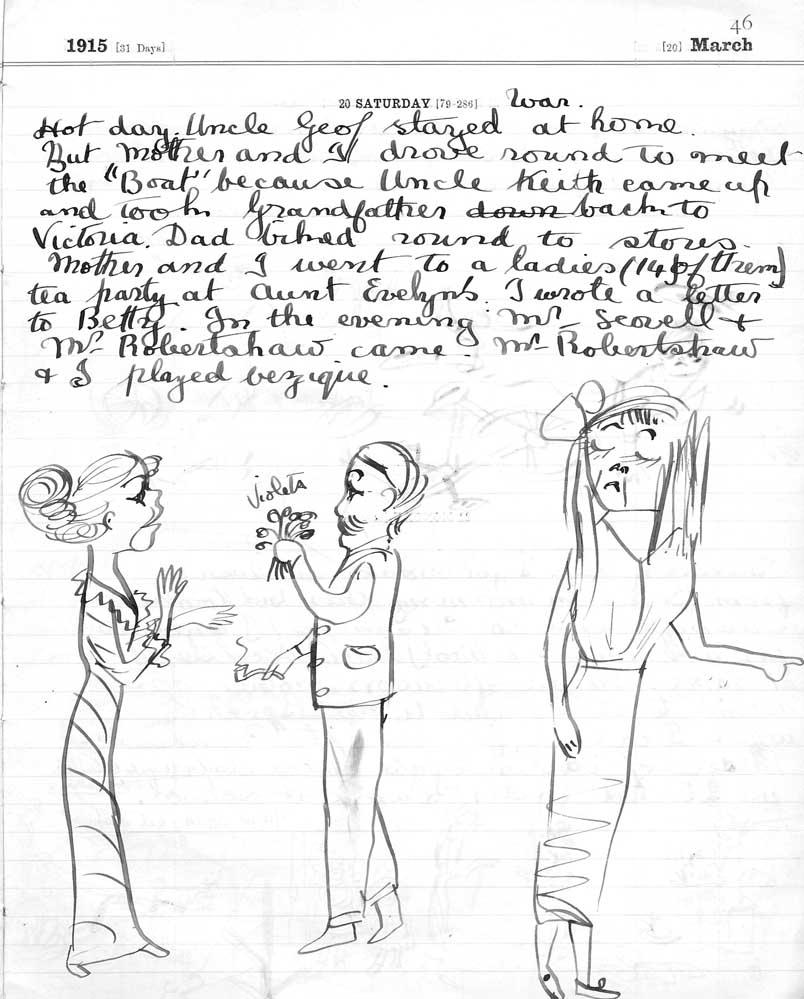 46
1915 [31 Days] [20] March
20 SATURDAY [79-286] War.
Hot day. Uncle Geof stayed at home.
But Mother and I drove round to meet
the "Boat" because Uncle Keith came up
and took Grandfather down back to
Victoria. Dad biked round to stores.
Mother and I went to a ladies (14 of them)
tea party at Aunt Evelyn's. I wrote a letter
to Betty. In the evening Mr Scovell +
Mr Robertshaw came. Mr Robertshaw
& I played bezique.
Violets